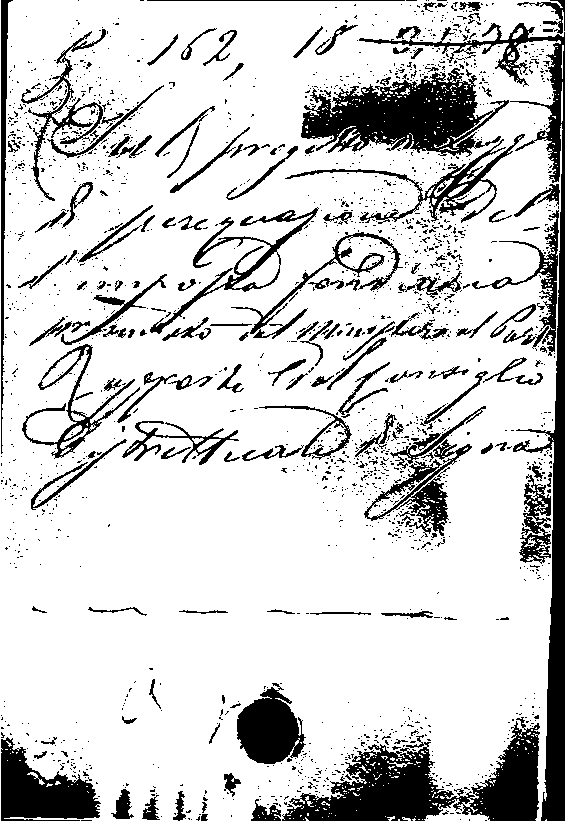 162, 18
Sul progetto di Legge
di perequazione del
l'imposta fondiaria
presentato dal Ministero al Parl
Rapporto del Consiglio
Distrettuale di Signa